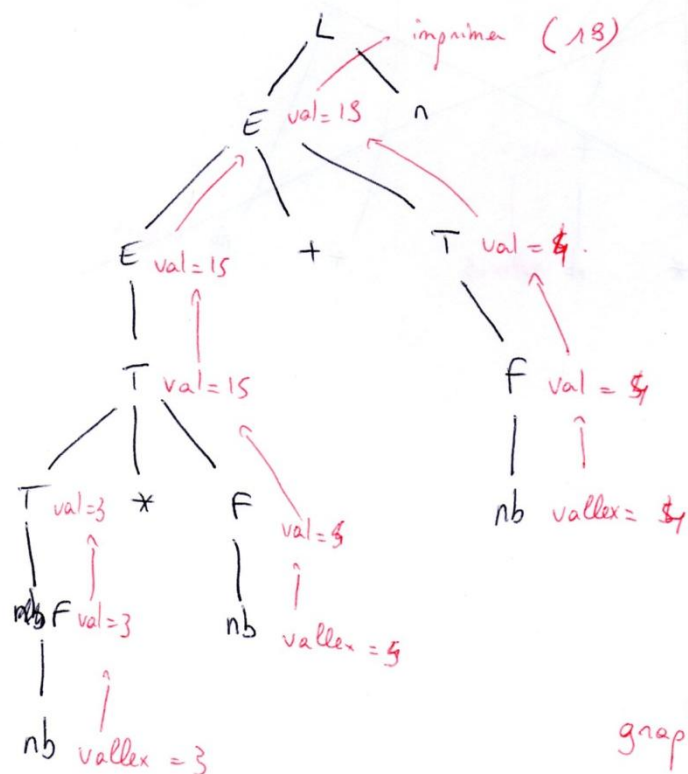 L imprimer (19)
E val=19 n
E val=15 + T val = 4
T val=15 F val = 4
T val=3 * F val=5 nb vallex = 4
F val=3 nb vallex = 5
nb vallex = 3
grap